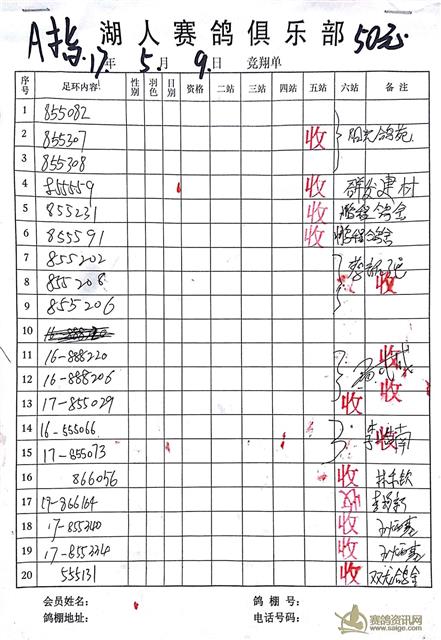 A指 湖人赛鸽俱乐部 50元
17年 5月 9日 竞翔单
序号 足环内容 性别 羽色 日别 资格 二站 三站 四站 五站 六站 备注
1 855082
2 855307 收 阳光鸽苑
3 855308
4 855559 收 群发建材
5 855231 收 鹏程鸽舍
6 855591 收 鹏程鸽舍
7 855202
8 855208 收
9 855206
10
11 16-888220 收
12 16-888206 收
13 17-855029 收
14 16-555066
15 17-855073 收
16 866056 收
17 17-866164 收
18 17-855340 收
19 17-855334 收
20 555131 收 双龙鸽舍
会员姓名: 鸽棚号:
鸽棚地址: 电话号码:
赛鸽资讯网
www.saige.com